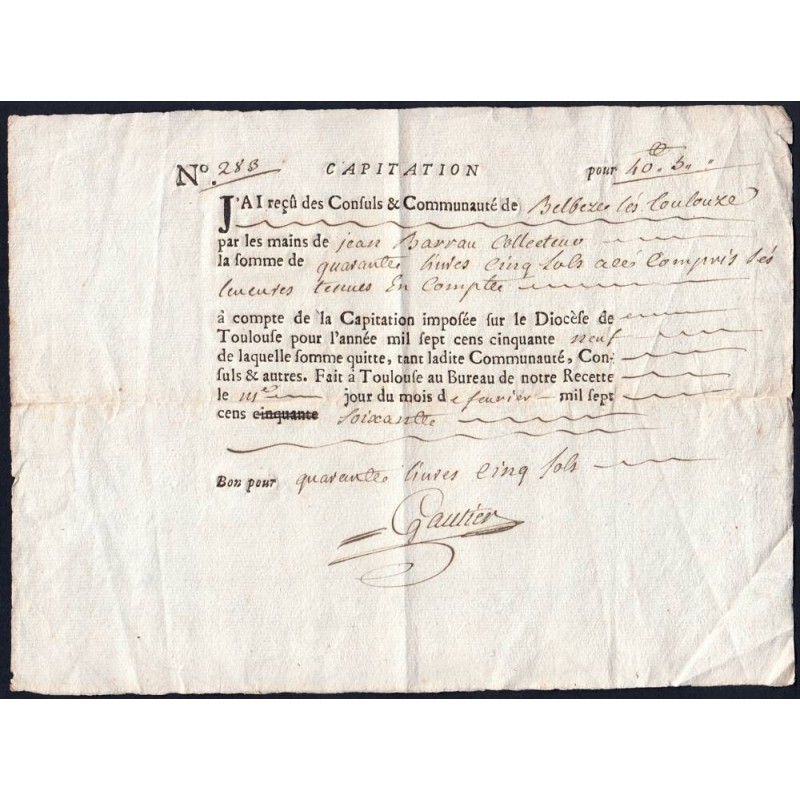 No. 283 CAPITATION pour 40 ₶ 5 ..
J'AI reçû des Conſuls & Communauté de Belbeze lés Toulouze
par les mains de jean Barrau Collecteur
la ſomme de quarante livres cinq ſols Compris lés
tenues En Compte
à compte de la Capitation impoſée ſur le Diocèſe de
Toulouſe pour l'année mil ſept cens cinquante neuf
de laquelle ſomme quitte, tant ladite Communauté, Con-
ſuls & autres. Fait à Toulouſe au Bureau de notre Recette
le jour du mois de fevrier mil ſept
cens cinquante Soixante
Bon pour quarante livres Cinq ſols
Gautier